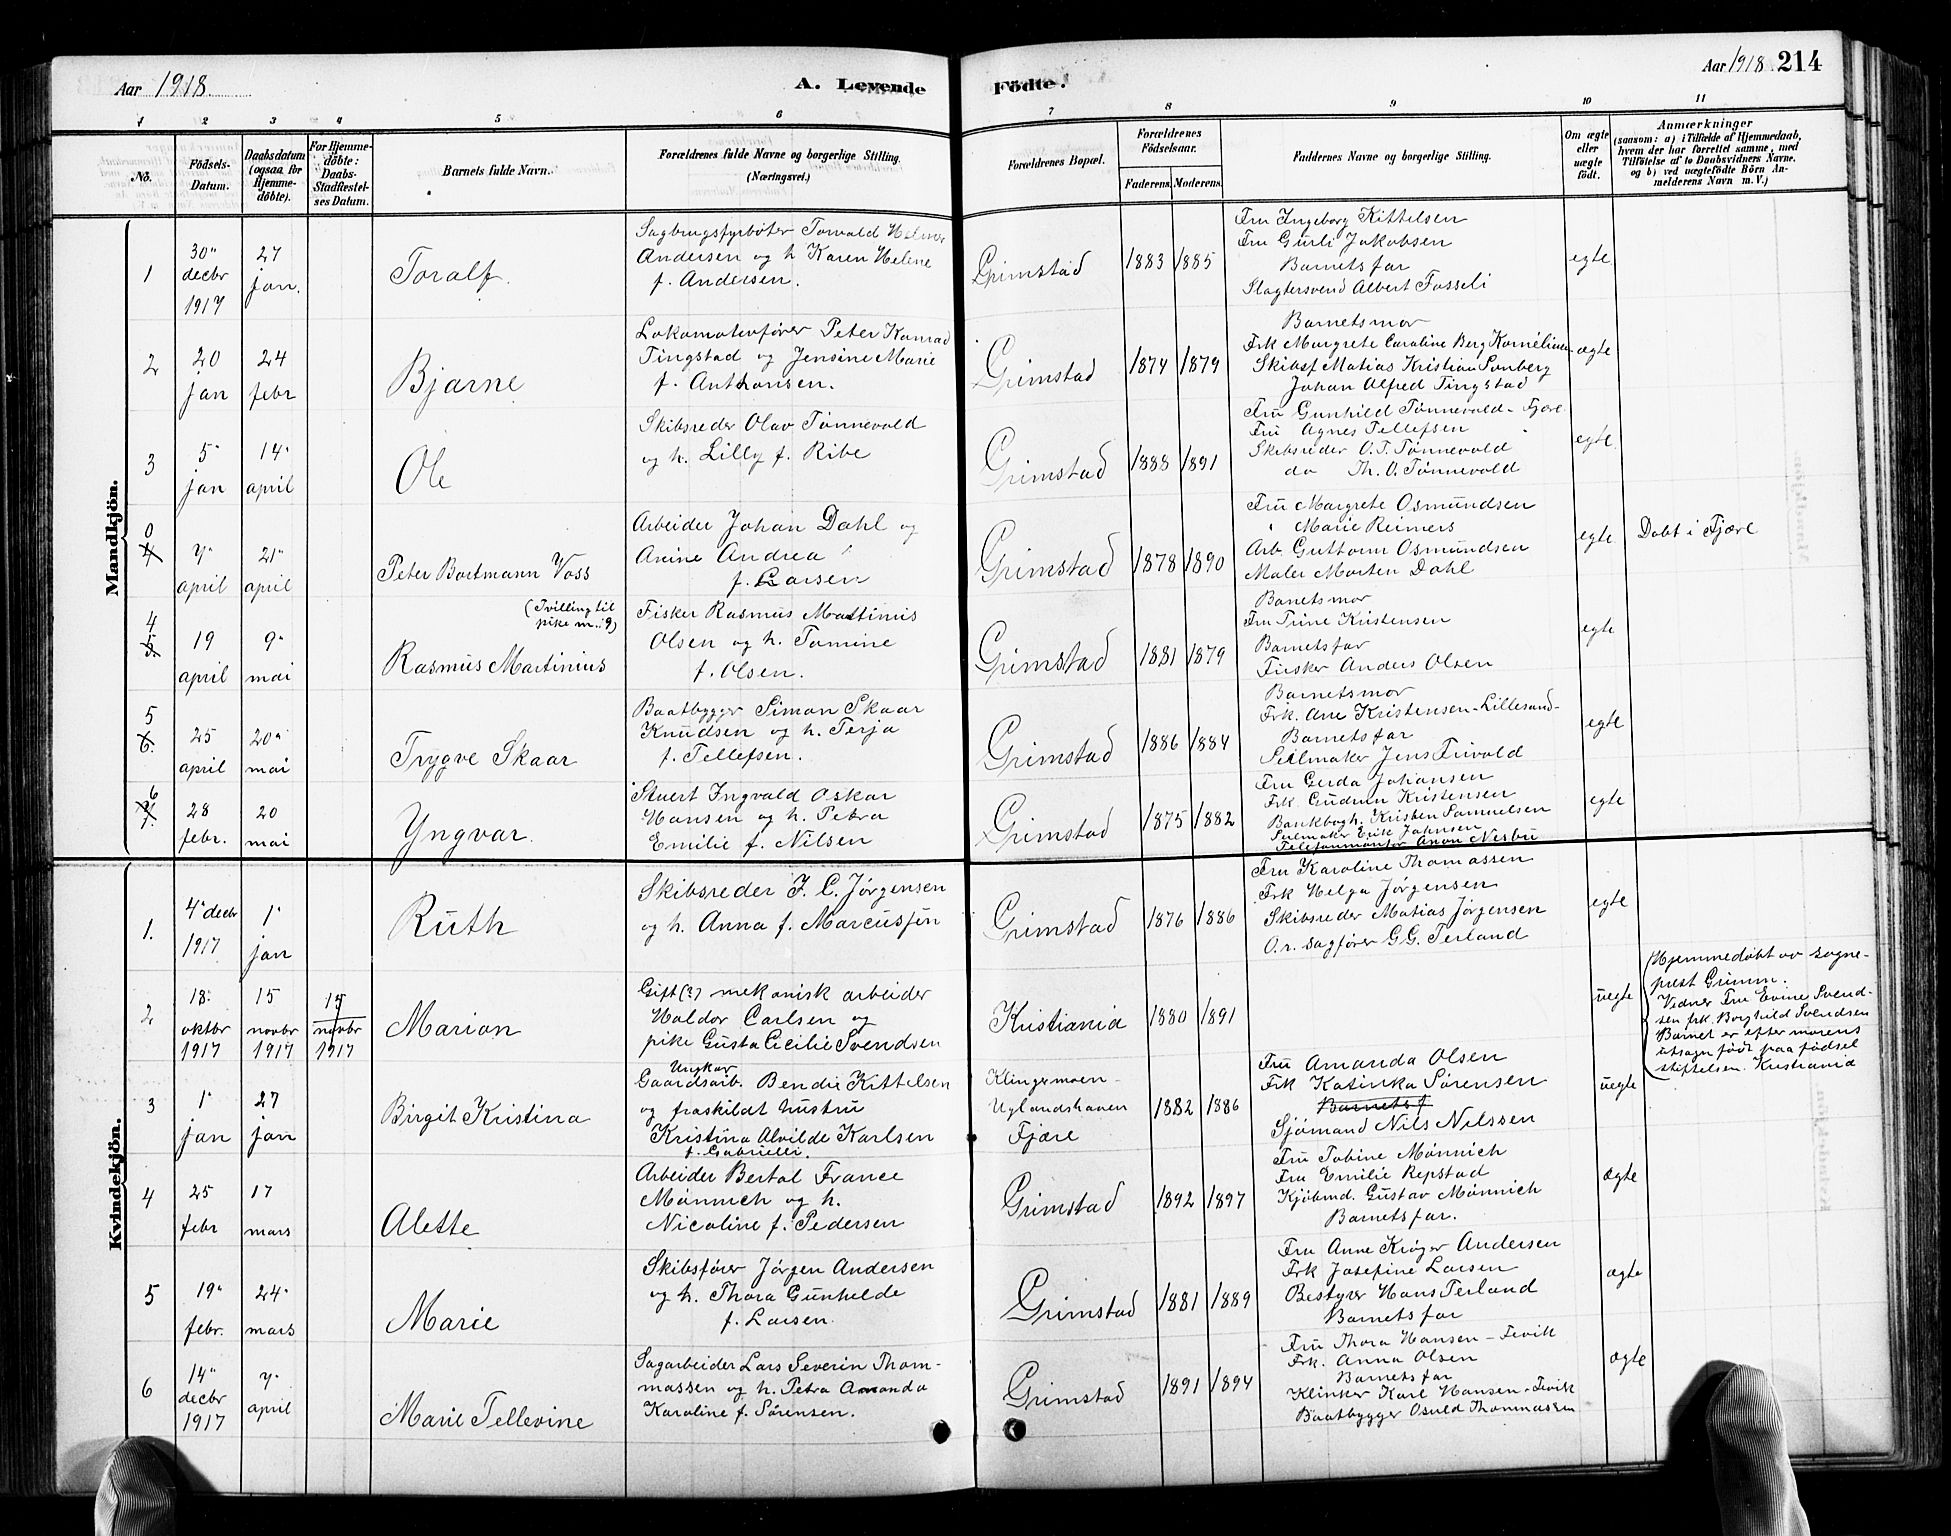 Aar 1918. A. Levende Födte. Aar 1918. 214
1 2 3 4 5 6 7 8 9 10 11
No.
Födsels-
Datum.
Daabsdatum
(ogsaa for
Hjemme-
döbte).
For Hjemme-
döbte:
Daabs-
Stadfæstel-
ses Datum.
Barnets fulde Navn.
Forældrenes fulde Navne og borgerlige Stilling.
(Næringsvei.)
Forældrenes Bopæl.
Forældrenes
Födselsaar.
Faderens. Moderens.
Faddernes Navne og borgerlige Stilling.
Om ægte
eller
uægte
födt.
Anmærkninger
(saasom: a) i Tilfælde af Hjemmedaab,
hvem der har forrettet samme, med
Tilföielse af to Daabsvidners Navne,
og b) ved uægtefödte Börn An-
melderens Navn m. V.)
Mandkjön.
1
30"
decbr
1917
27
jan.
Toralf.
Sagbrugsfyrbøter Torvald Helmer
Andersen og h. Karen Helene
f. Andersen.
Grimstad
1883 1885
Fru Ingeborg Kittelsen
Fru Gurli Jakobsen
Barnets far
Slagtersvend Albert Fosseli
egte
2
20
jan
24
febr
Bjarne
Lokomotivfører Peter Konrad
Tingstad og Jensine Marie
f. Anthonsen.
Grimstad
1874 1879
Barnets mor
Frk Margrete Caroline Berg Kornelius-
Skibsf Matias Kristian Sonberg
Johan Alfred Tingstad
ægte
3
5"
jan
14"
april
Ole
Skibsreder Olav Tønnevold
og h. Lilly f. Ribe
Grimstad
1888 1891
Fru Gunhild Tønnevold - Fjære
Fru Agnes Tellefsen
Skibsreder O. T. Tønnevold
do Th. O. Tønnevold
egte
0
4
7"
april
21"
april
Peter Bortmann Voss
Arbeider Johan Dahl og
Anine Andrea
f. Larsen
Grimstad
1878 1890
Fru Margrete Osmundsen
" Marie Reimers
Arb. Guttorm Osmundsen
Maler Morten Dahl
egte
Døbt i Fjære
4
5
19
april
9"
mai
(Tvilling til
pike m. 9)
Rasmus Martinius
Fisker Rasmus Martinius
Olsen og h. Tomine
f. Olsen.
Grimstad
1881 1879
Barnets mor
Fru Trine Kristensen
Barnets far
Fisker Anders Olsen
egte
5
6.
25
april
20"
mai
Trygve Skaar
Baatbygger Simon Skaar
Knudsen og h. Terja
f. Tellefsen.
Grimstad
1886 1884
Barnets mor
Frk. Ane Kristensen - Lillesand -
Barnets far
Seilmaker Jens Frivold
egte
6
7.
28
febr.
20
mai
Yngvar.
Stuert Ingvald Oskar
Hansen og h. Petra
Emilie f. Nilsen
Grimstad
1875 1882
Fru Gerda Johansen
Frk. Gudrun Kristensen
Bankbogh. Kristen Samuelsen
Seilmaker Erik Johnsen
Telefonmontør Anon Nesbu
egte
Kvindekjön.
1.
4" decbr
1917
1"
jan
Ruth
Skibsreder J. C. Jørgensen
og h. Anna f. Marcussen
Grimstad
1876 1886
Fru Karoline Thomassen
Frk Helga Jørgensen
Skibsreder Matias Jørgensen
O.r. sagfører G. G. Terland
egte
2
18"
oktbr
1917
15
novbr
1917
15
novbr
1917
Marion
Gift (?) mekanisk arbeider
Haldor Carlsen og
pike Gusta Cicilie Svendsen
Kristiania
1880 1891
uegte
Hjemmedøbt av sogne-
prest Grimm.
Vidner Fru Evine Svend-
sen frk. Borghild Svendsen
Barnet er efter morens
utsagn født paa fødsel
stiftelsen. Kristiania
3
1"
jan
27
jan
Birgit Kristina
Ungkar
Gaardsarb. Bendie Kittelsen
og fraskildt hustru
Kristina Alvilde Karlsen
f. Gabrielli.
Klingermoen-
Uglandshaven
Fjære
1882 1886
Fru Amanda Olsen
Frk Katinka Sørensen
Barnets f
Sjømand Nils Nilssen
uegte
4
25
febr
17
mars
Alette
Arbeider Bertol France
Mønnich og h.
Nicoline f. Pedersen
Grimstad
1892 1897
Fru Tobine Mønnich
Fru Emilie Repstad
Kjøbmd. Gustav Mønnich
Barnets far.
ægte
5
19"
febr.
24"
mars
Marie
Skibsfører Jørgen Andersen
og h. Thora Gunhilde
f. Larsen.
Grimstad
1881 1889
Fru Anne Krøger Andersen
Frk Josefine Larsen
Bestyrer Hans Terland
Barnets far
ægte
6
14"
decbr
1917
7"
april
Marie Tellevine
Sagarbeider Lars Severin Thom-
massen og h. Petra Amanda
Karoline f. Sørensen.
Grimstad
1891 1894
Fru Thora Hansen - Fevik
Frk. Anna Olsen
Barnets far
Klinker Karl Hansen - Fevik
Baatbygger Osuld Thommassen
ægte